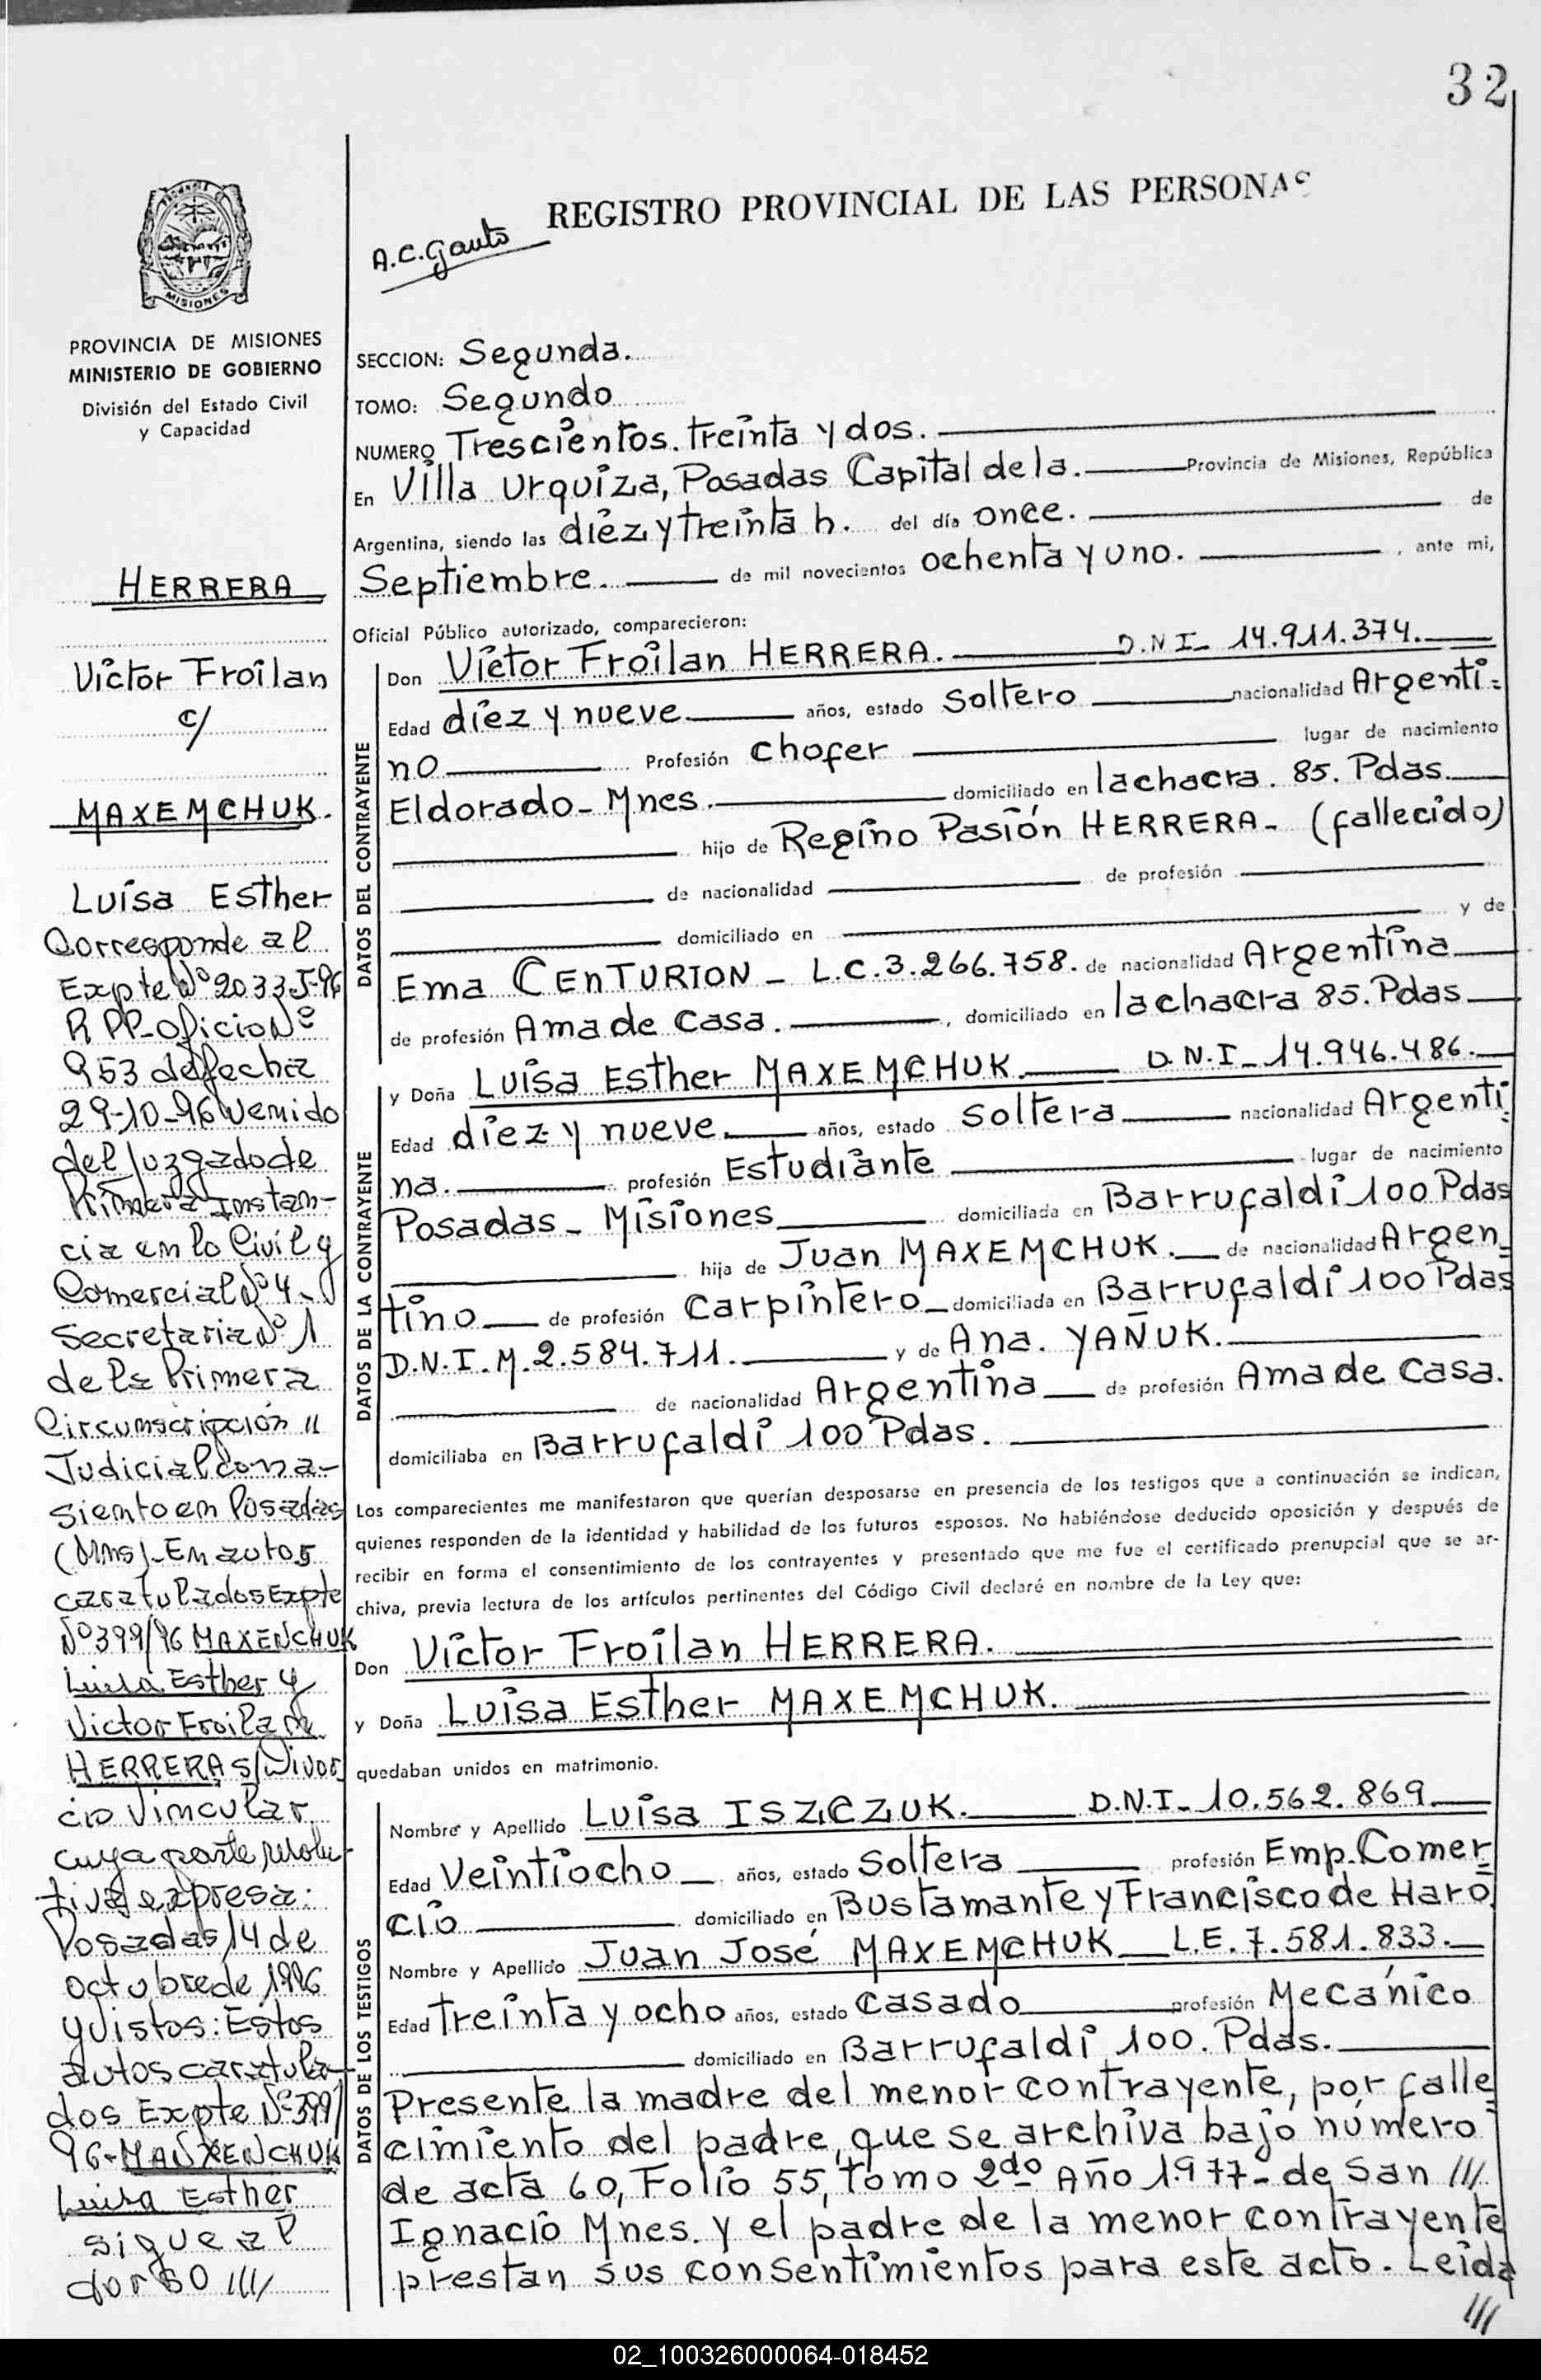 32
REGISTRO PROVINCIAL DE LAS PERSONAS
A.C. Gauto
MISIONES
PROVINCIA DE MISIONES
MINISTERIO DE GOBIERNO
División del Estado Civil
y Capacidad
HERRERA
Víctor Froilan
c/
MAXEMCHUK.
Luisa Esther
Corresponde al
Expte Nº 2033-J-96
R PP-Oficio Nº
953 de fecha
29-10-96 venido
del Juzgado de
Primera Instan-
cia en lo Civil y
Comercial Nº 4-
Secretaria Nº 1
de la Primera
Circunscripción
Judicial con a-
siento en Posadas
(Mns)-En autos
caratulados Expte
Nº 399/96 MAXENCHUK
Luisa Esther y
Victor Froilan
HERRERA S/Divor
cio Vincular
cuya parte resolu-
tiva expresa:
Posadas, 14 de
octubre de 1996
y vistos: Estos
autos caratula-
dos Expte Nº 399/
96-MAXENCHUK
Luisa Esther
sigue al
dorso ///
SECCION: Segunda.
TOMO: Segundo
NUMERO Trescientos. treinta y dos.
En Villa Urquiza, Posadas Capital de la. Provincia de Misiones, República
Argentina, siendo las diez y treinta h. del día once. de
Septiembre. de mil novecientos ochenta y uno. , ante mi,
Oficial Público autorizado, comparecieron:
DATOS DEL CONTRAYENTE
Don Víctor Froilan HERRERA. D.N.I- 14.911.374.
Edad diez y nueve años, estado Soltero nacionalidad Argenti-
no Profesión Chofer lugar de nacimiento
Eldorado- Mnes. domiciliado en lachacra. 85. Pdas.
hijo de Regino Pasión HERRERA- (fallecido)
de nacionalidad de profesión
domiciliado en y de
Ema CENTURION - L.C.3.266.758. de nacionalidad Argentina
de profesión Ama de Casa. , domiciliado en lachacra 85. Pdas
DATOS DE LA CONTRAYENTE
y Doña Luisa Esther MAXEMCHUK. D.N.I- 14.946.486.
Edad diez y nueve. años, estado Soltera nacionalidad Argenti
na. profesión Estudiante lugar de nacimiento
Posadas- Misiones domiciliada en Barrufaldi 100 Pdas
hija de Juan MAXEMCHUK. de nacionalidad Argen-
tino de profesión Carpintero- domiciliada en Barrufaldi 100 Pdas
D.N.I.M. 2.584.711. y de Ana. YAÑUK.
de nacionalidad Argentina de profesión Ama de Casa.
domiciliaba en Barrufaldi 100 Pdas.
Los comparecientes me manifestaron que querían desposarse en presencia de los testigos que a continuación se indican,
quienes responden de la identidad y habilidad de los futuros esposos. No habiéndose deducido oposición y después de
recibir en forma el consentimiento de los contrayentes y presentado que me fue el certificado prenupcial que se ar-
chiva, previa lectura de los artículos pertinentes del Código Civil declaré en nombre de la Ley que:
Don Víctor Froilan HERRERA.
y Doña Luisa Esther MAXEMCHUK.
quedaban unidos en matrimonio.
DATOS DE LOS TESTIGOS
Nombre y Apellido Luisa ISZCZUK. D.N.I- 10.562.869
Edad Veintiocho años, estado Soltera profesión Emp. Comer
cio domiciliado en Bustamante y Francisco de Haro
Nombre y Apellido Juan José MAXEMCHUK L.E. 7.581.833.
Edad treinta y ocho años, estado Casado profesión Mecánico
domiciliado en Barrufaldi 100. Pdas.
Presente la madre del menor contrayente, por falle
cimiento del padre, que se archiva bajo número
de acta 60, Folio 55, tomo 2do Año 1977- de San ///
Ignacio Mnes. y el padre de la menor contrayente
prestan sus consentimientos para este acto. Leida
///
02_100326000064-018452